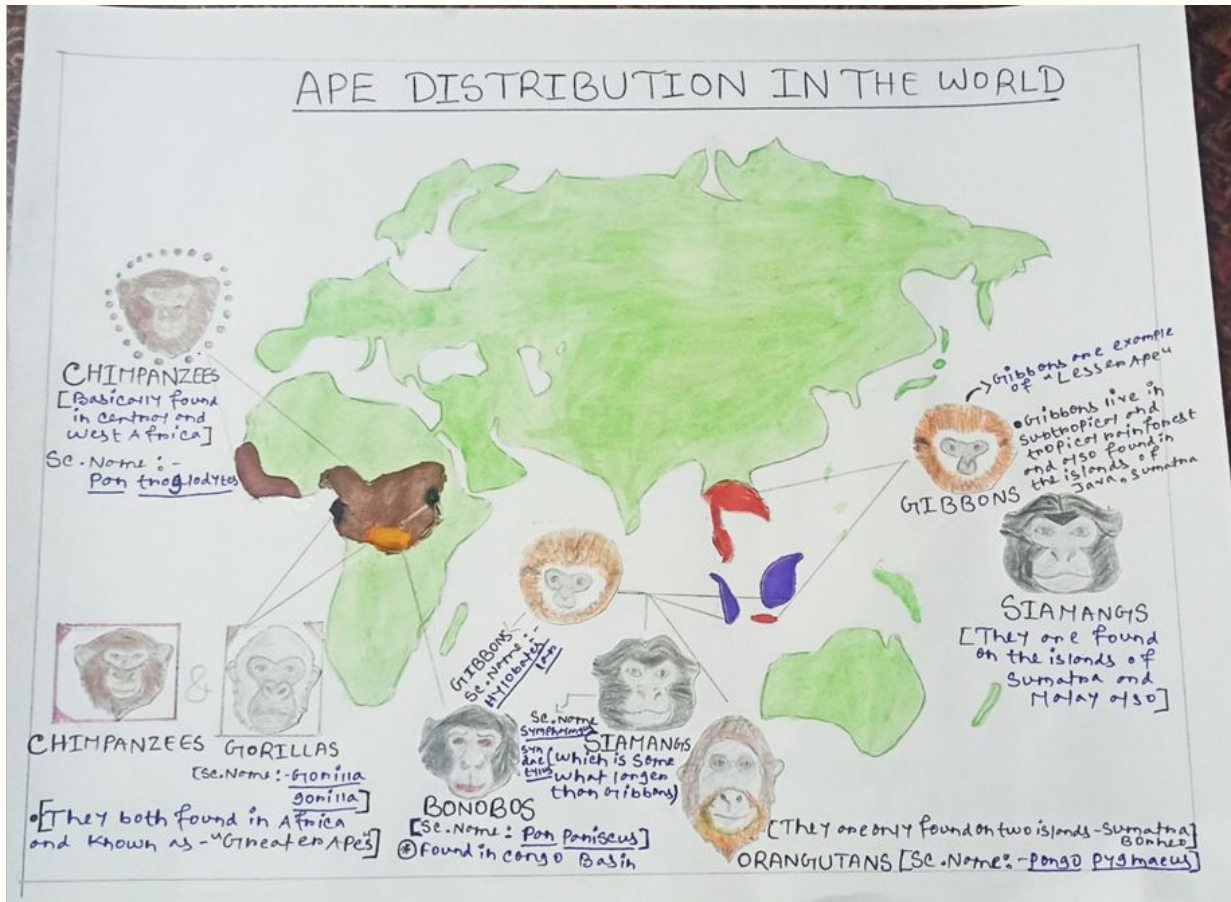 APE DISTRIBUTION IN THE WORLD
CHIMPANZEES
[Basically found
in Central and
West Africa]
Sc.Name:-
Pan troglodytes
→Gibbons are example
of "Lesser Ape"
•Gibbons live in
subtropical and
tropical rainforest
and also found in
the islands of
Java, Sumatra
GIBBONS
SIAMANGS
[They are found
on the islands of
Sumatra and
Malay also]
CHIMPANZEES
&
GORILLAS
[Sc.Name:-Gorilla
gorilla]
•[They both found in Africa
and known as -"Greater Apes"]
GIBBONS
Sc.Name:-
Hylobates
lar
BONOBOS
[Sc.Name: Pan Paniscus]
* found in congo Basin
Sc.Name
Symphalangus
syn
dac
tylus
SIAMANGS
(which is some
what longer
than Gibbons)
[They are only found on two islands-Sumatra
Borneo]
ORANGUTANS [Sc.Name:-Pongo pygmaeus]